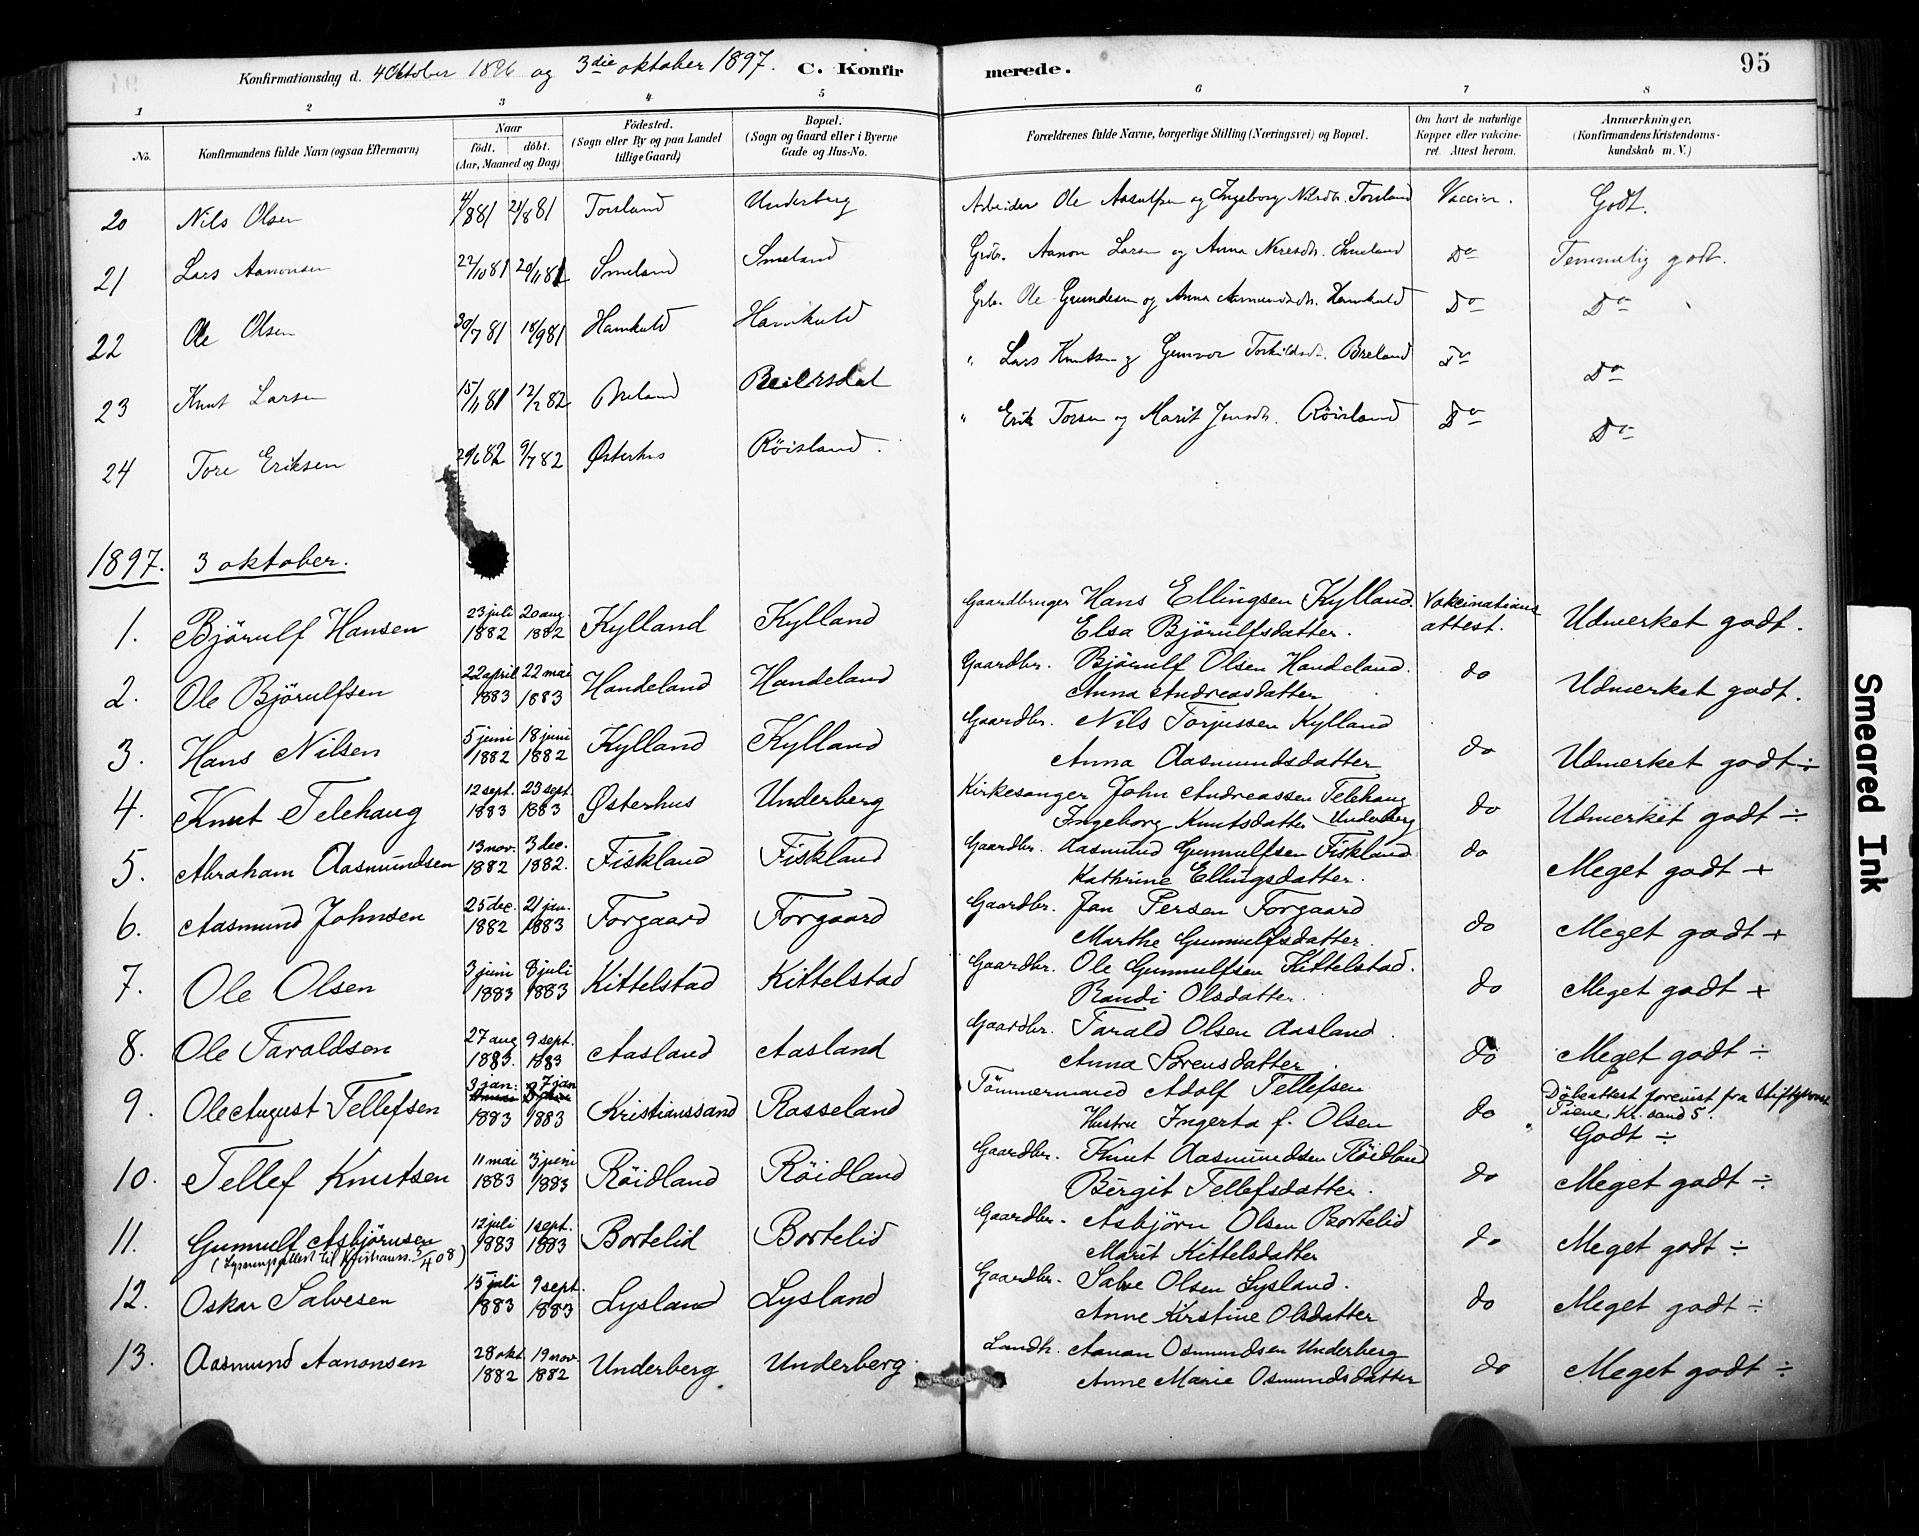 Konfirmationsdag d. 4 Oktober 1896 og 3die oktober 1897. C. Konfirmerede. 95
1 2 3 4 5 6 7 8
No. Konfirmandens fulde Navn (ogsaa Efternavn) Naar födt. döbt. (Aar, Maaned og Dag) Födested. (Sogn eller By og paa Landet tillige Gaard) Bopæl. (Sogn og Gaard eller i Byerne Gade og Hus-No. Forældrenes fulde Navne, borgerlige Stilling (Næringsvei) og Bopæl. Om havt de naturlige Kopper eller vakcineret. Attest herom. Anmærkninger. (Konfirmandens Kristendomskundskab m. V.)
20 Nils Olsen 21/8 81 Torsland Underberg Arbeider Ole Aasulfsen og Ingeborg Nilsdtr. Torsland Vaccin. Godt.
21 Lars Aanonsen 22/10 81 20/11 81 Smeland Smeland Grdbr. Aanon Larsen og Anna Neresdtr. Smeland Do Temmelig godt.
22 Ole Olsen 30/7 81 18/9 81 Hamkuld Hamkuld Grbr. Ole Gundesen og Anna Asmundsdtr. Hamkuld Do Do
23 Knut Larsen 15/11 81 12/2 82 Breland Beiersdal " Lars Knutsen og Gunvor Torkildsdtr. Breland Do Do
24 Tore Eriksen 29/6 82 9/7 82 Østerhus Röisland " Erik Torsen og Marit Jensdtr. Röisland Do Do
1897. 3 oktober.
1. Björulf Hansen 23 juli 1882 20 aug. 1882 Kylland Kylland Gaardbruger Hans Ellingsen Kylland. Elsa Björulfsdatter. Vakcinationsattest. Udmerket godt.
2. Ole Björulfsen 22 april 1883 22 mai 1883 Handeland Handeland Gaardbr. Björulf Olsen Handeland. Anna Andreasdatter do Udmerket godt.
3. Hans Nilsen 5 juni 1882 18 juni 1882 Kylland Kylland Gaardbr. Nils Torjussen Kylland Anna Aasmundsdatter do Udmerket godt ÷
4. Knut Telehaug 12 sept. 1883 23 sept. 1883 Østerhus Underberg Kirkesanger John Andreassen Telehaug Ingeborg Knutsdatter Underberg do Udmerket godt ÷
5. Abraham Aasmundsen 13 nov. 1882 3 dec. 1882. Fiskland Fiskland Gaardbr. Aasmund Gunnulfsen Fiskland Kathrine Ellingsdatter. do Meget godt +
6. Aasmund Johnsen 25 dec. 1882 21 jan. 1883 Forgaard Forgaard Gaardbr. Jon Persen Forgaard Marthe Gunnulfsdatter. do Meget godt +
7. Ole Olsen 3 juni 1883 8 juli 1883 Kittelstad Kittelstad Gaardbr. Ole Gunnulfsen Kittelstad. Randi Olsdatter. do Meget godt +
8. Ole Taraldsen 27 aug 1883. 9 sept. 1883 Aasland Aasland Gaardbr. Tarald Olsen Aasland. Anna Sörensdatter do Meget godt ÷
9. Ole August Tellefsen 3 jan. 1883 7 jan 1883 Kristianssand Rosseland Tömmermand Adolf Tellefsen Hustru Ingerta f. Olsen do Döbeattest forevist fra Stiftsprovst Piene, Kr.sand S. Godt ÷
10. Tellef Knutsen 11 mai 1883 3 juni 1883 Röidland Röidland Gaardbr. Knut Aasmundsen Röidland Bergit Tellefsdatter. do Meget godt ÷
11. Gunnulf Asbjörnsen 12 juli 1883 1 sept. 1883 Bortelid Bortelid Gaardbr. Asbjörn Olsen Bortelid Marit Kittelsdatter do Meget godt ÷
(Lysningsattest til Kristianss. 5/4 08)
12. Oskar Salvesen 15 juli 1883 9 sept. 1883 Lysland Lysland Gaardbr. Salve Olsen Lysland. Anne Kirstine Olsdatter do Meget godt ÷
13. Aasmund Aanonsen 28 okt 1882 19 nov. 1882 Underberg Underberg. Landh. Aanon Osmundsen Underberg Anne Marie Osmundsdatter do Meget godt ÷
Smeared Ink